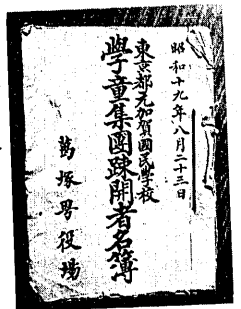 昭和十九年八月二十三日
東京都元加賀國民學校
學童集團疎開者名簿
葛塚甼役場